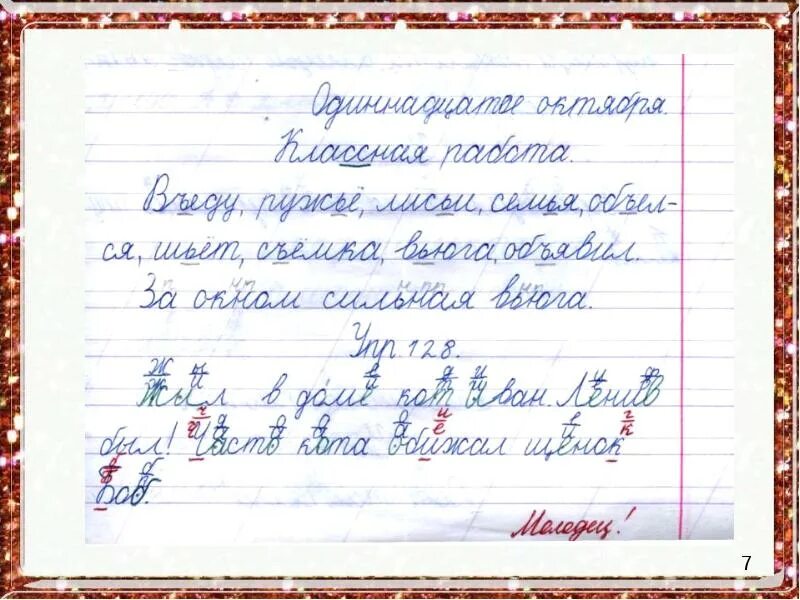 Одиннадцатое октября.
Классная работа.
Въеду, ружьё, лисьи, семья, объел-
ся, шьёт, съёмка, вьюга, объявил.
За окном сильная вьюга.
Упр. 128.
Жыл в доме кот Иван. Ленив
был! Часто кота обижал щенок
Боб.
Молодец!
7